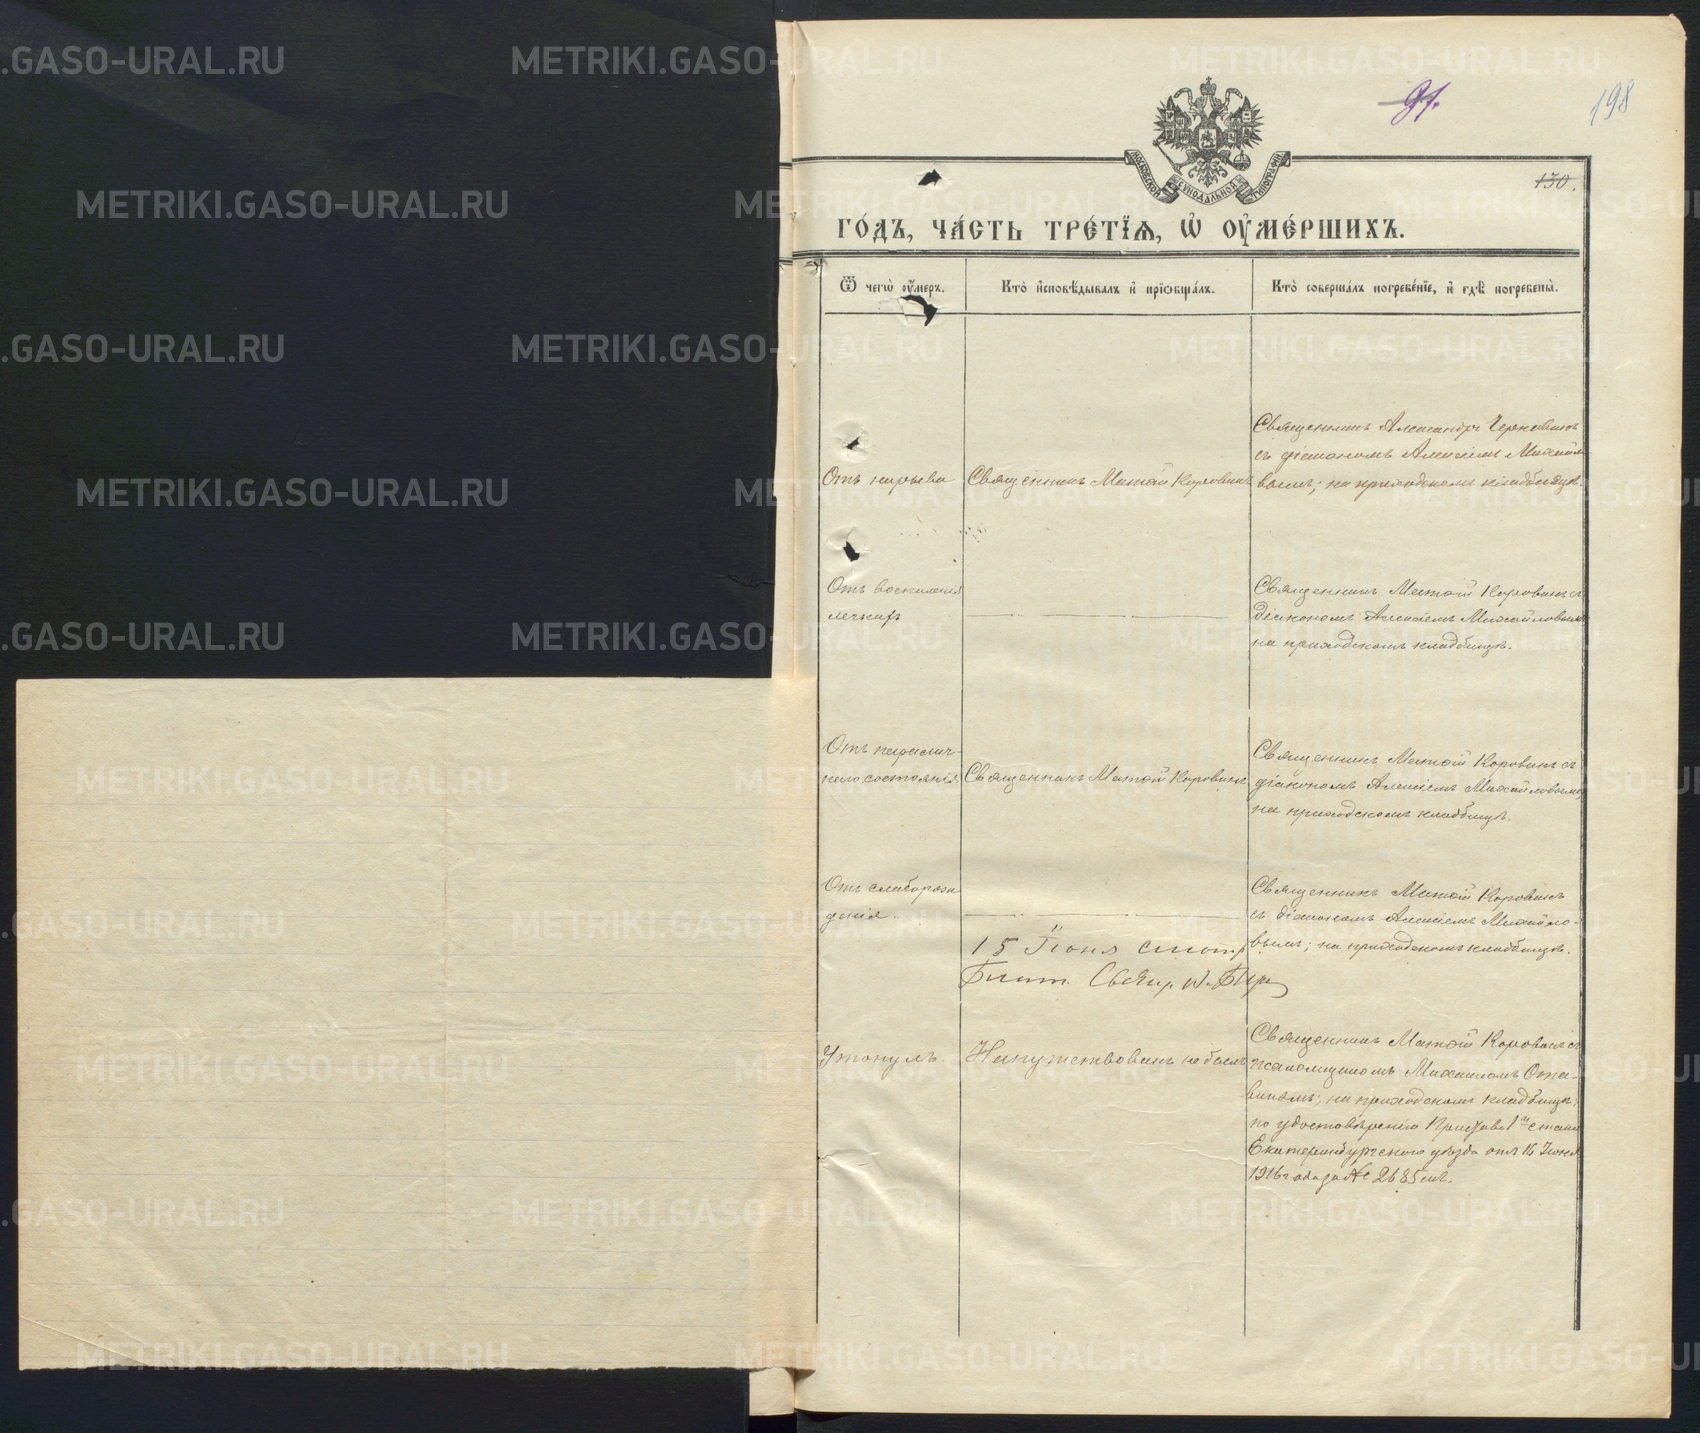 91.
198
130.
МОСКОВСКОЙ СѴНОДАЛЬНОЙ ТИПОГРАФІИ
ГО́ДЪ, ЧА́СТЬ ТРЕ́ТЇѦ, Ѡ҆ ОУ҆МЕ́РШИХЪ.
Ѿ чегѡ̀ оу҆́меръ.
Кто̀ и҆сповѣ́дывалъ и҆ прїѻбща́лъ.
Кто̀ соверша́лъ погребе́нїе, и҆ гдѣ̀ погребены̀.
Отъ нарыва
Священникъ Матѳій Коровинъ
Священникъ Александръ
съ діакономъ Алексіемъ Михайло-
вымъ; на приходскомъ кладбищѣ.
Отъ воспаленія
легкихъ
Священникъ Матѳій Коровинъ съ
діакономъ Алексіемъ Михайловымъ
на приходскомъ кладбищѣ.
Отъ паралич-
наго состоянія
Священникъ Матѳій Коровинъ
Священникъ Матѳій Коровинъ съ
діакономъ Алексіемъ Михайловымъ
на приходскомъ кладбищѣ.
Отъ слаборож-
денія.
Священникъ Матѳій Коровинъ
съ діакономъ Алексіемъ Михайло-
вымъ; на приходскомъ кладбищѣ.
15 Іюня
Утонулъ.
Напутствованъ не былъ
Священникъ Матѳій Коровинъ съ
псаломщикомъ Михаиломъ
на приходскомъ кладбищѣ;
по удостовѣренію Пристава 1го стана
Екатеринбургскаго уѣзда отъ 16 Іюня
1916 года за № 2685
METRIKI.GASO-URAL.RU